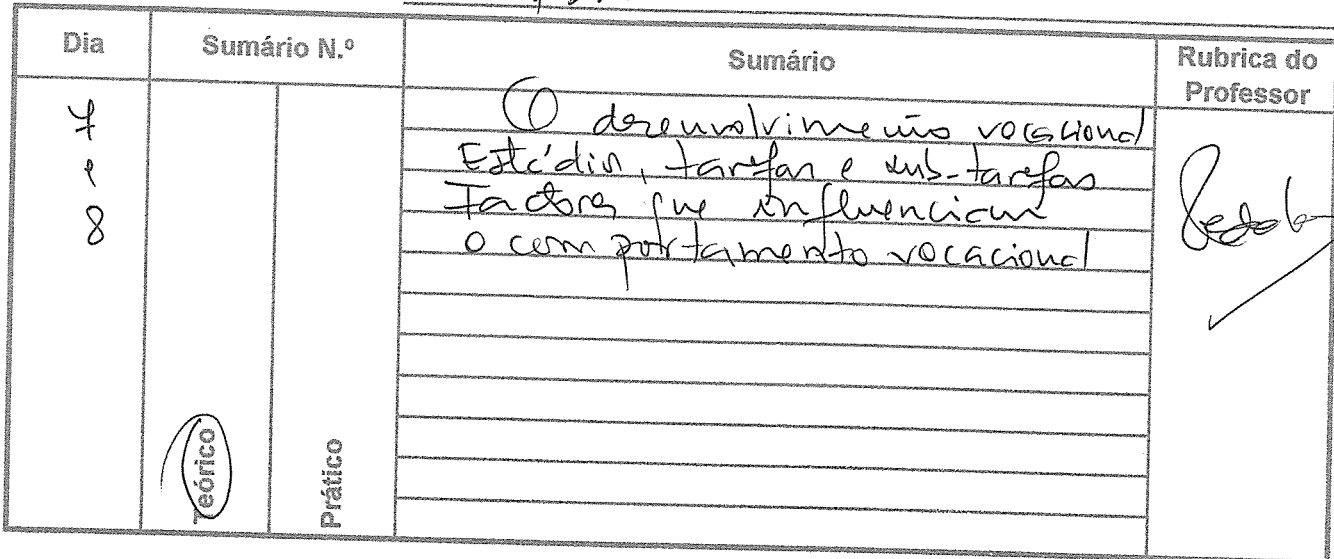 Dia
Sumário N.º
Sumário
Rubrica do
Professor
7
e
8
O desenvolvimento vocacional
Estádios, tarefas e sub-tarefas
Factores que influenciam
o comportamento vocacional
Teórico
Prático